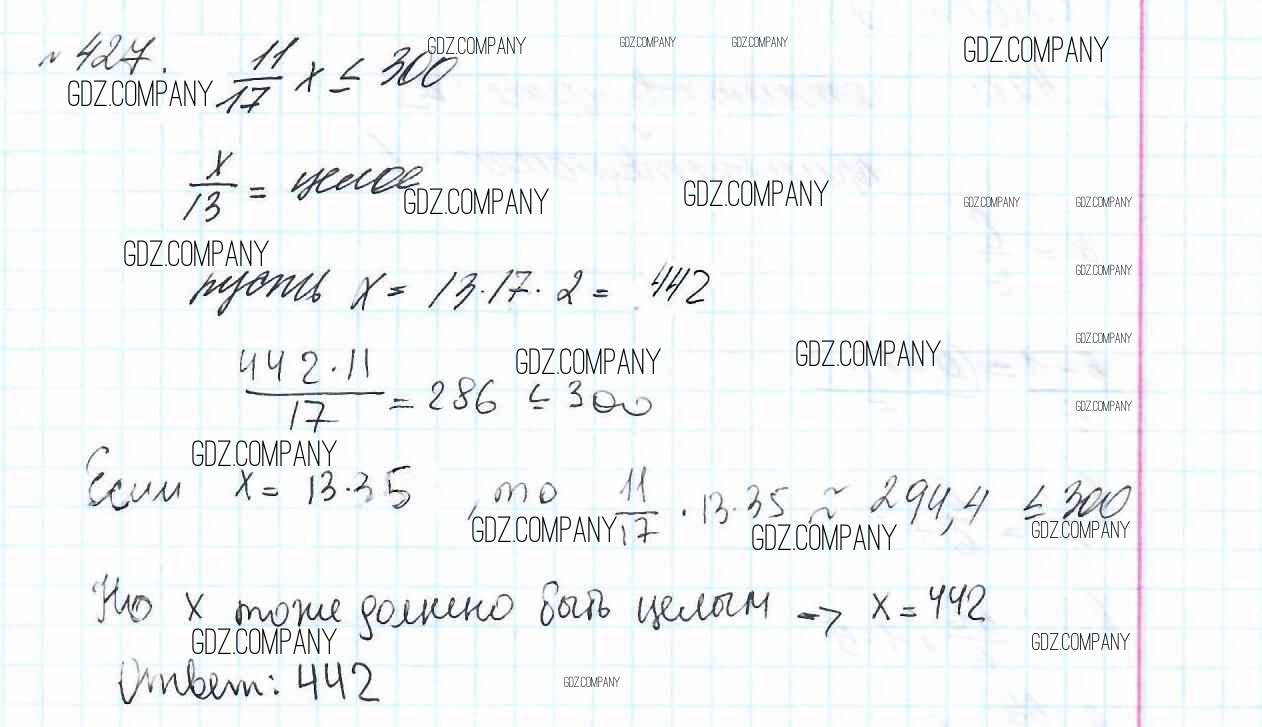 № 427. 11/17 x ≤ 300
GDZ.COMPANY GDZ.COMPANY GDZ.COMPANY GDZ.COMPANY
GDZ.COMPANY
x/13 = целое
GDZ.COMPANY GDZ.COMPANY GDZ.COMPANY GDZ.COMPANY
GDZ.COMPANY GDZ.COMPANY
пусть x = 13·17·2 = 442
GDZ.COMPANY GDZ.COMPANY GDZ.COMPANY
442·11/17 = 286 ≤ 300
GDZ.COMPANY
GDZ.COMPANY
Если x = 13·35, то 11/17 · 13·35 ≈ 294,4 ≤ 300
GDZ.COMPANY GDZ.COMPANY GDZ.COMPANY
Но x тоже должно быть целым → x = 442
GDZ.COMPANY GDZ.COMPANY
Ответ: 442
GDZ.COMPANY